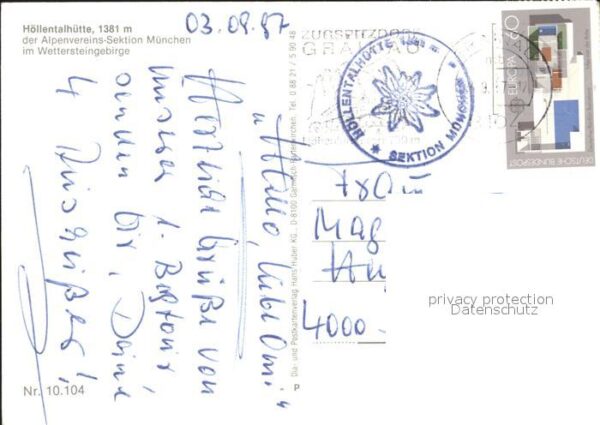 Höllentalhütte, 1381 m
der Alpenvereins-Sektion München
im Wettersteingebirge
03.09.87
"Hallo, liebe Omi"
Herzliche Grüße von
unserer 1. Bergtour
senden Dir, Deine
4
Nr. 10.104
Dia- und Postkartenverlag Hans Huber KG., D-8100 Garmisch-Partenkirchen, Tel. 0 88 21 / 5 90 48
P
ZUGSPITZDORF
GRAINAU
HÖLLENTALHÜTTE 1381 m
SEKTION MÜNCHEN
60
EUROPA
DEUTSCHE BUNDESPOST
Frau
Mag
4000
privacy protection
Datenschutz